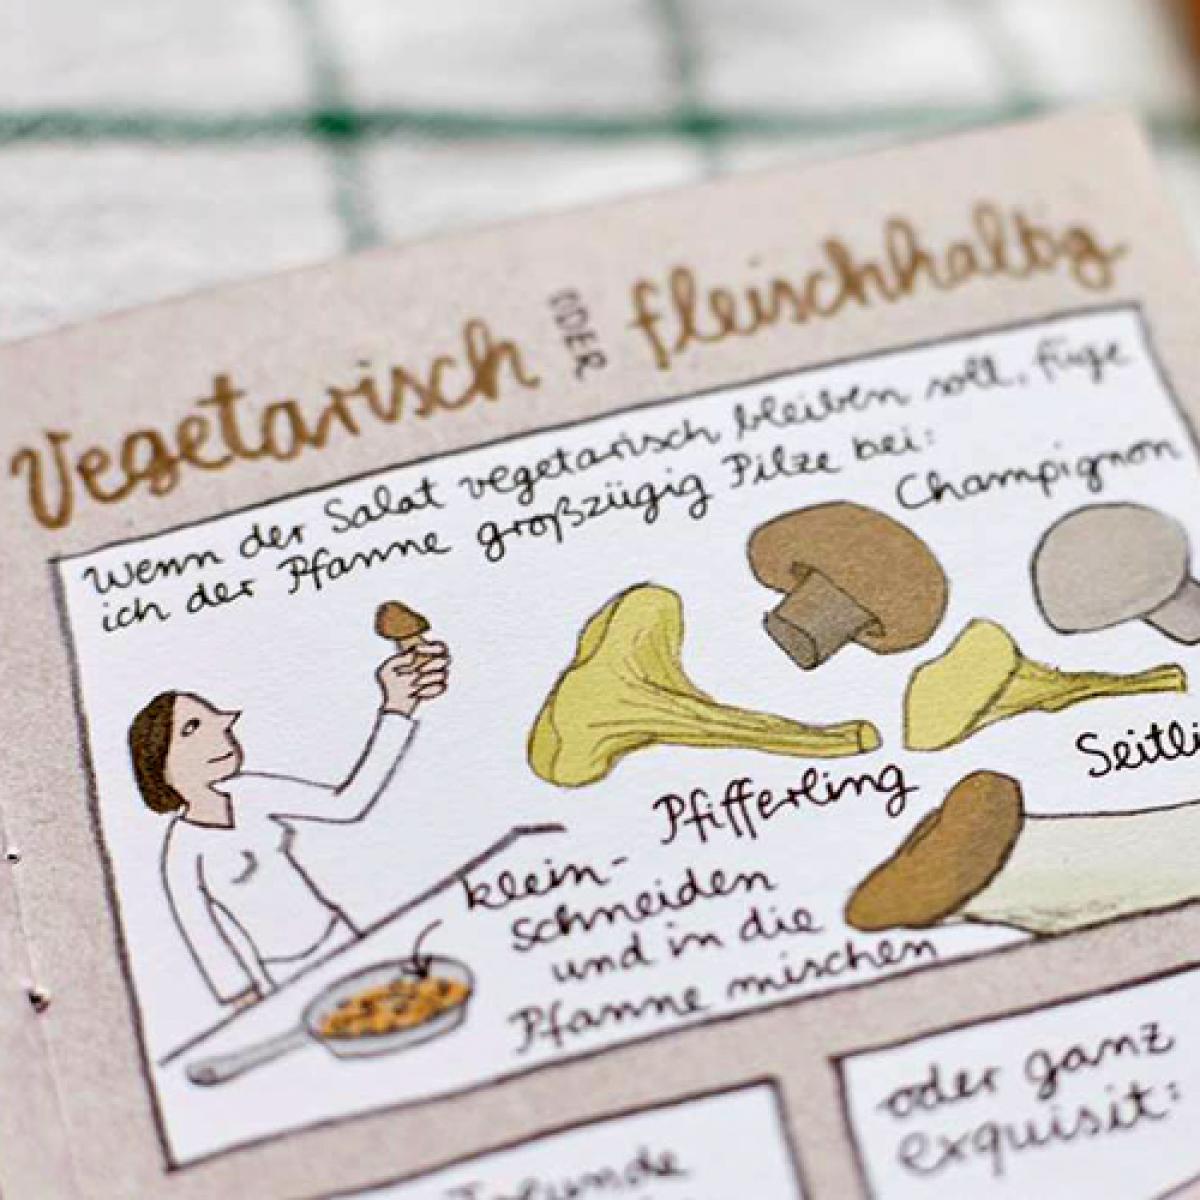 Vegetarisch ODER fleischhaltig
Wenn der Salat vegetarisch bleiben soll, füge
ich der Pfanne großzügig Pilze bei:
Champignon
Pfifferling
Seitli
klein-
schneiden
und in die
Pfanne mischen
oder ganz
exquisit:
Freunde